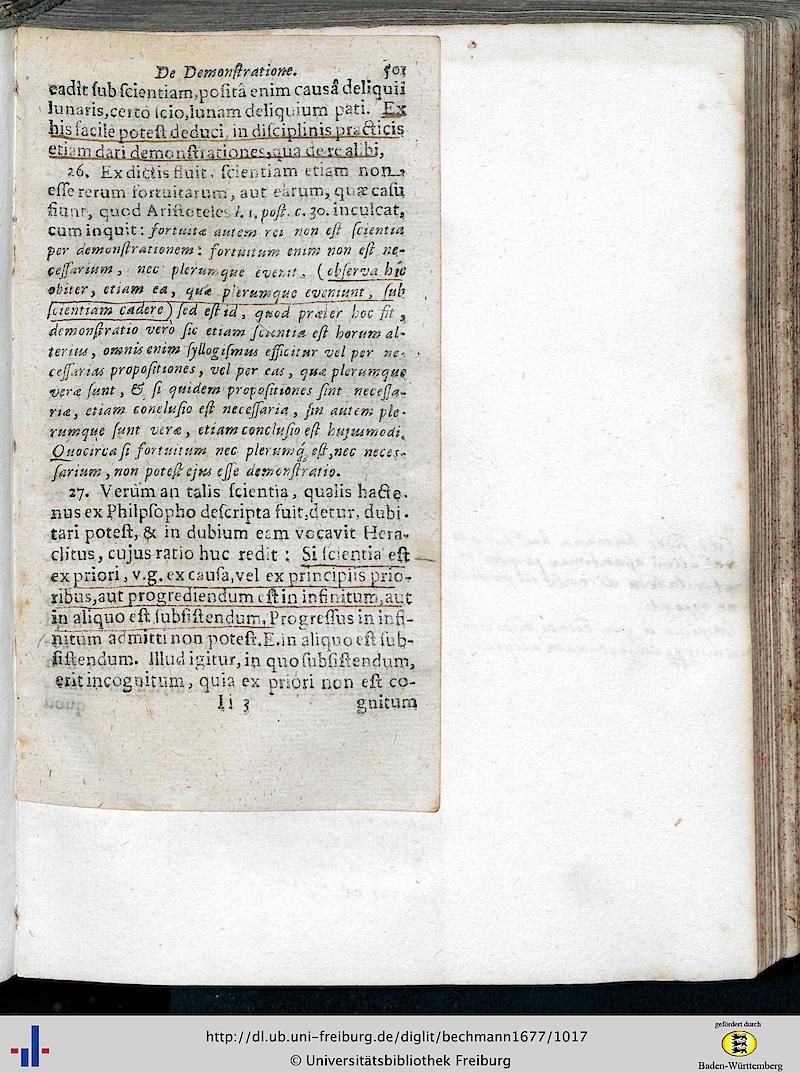 De Demonſtratione. 501
cadit ſub ſcientiam, poſitâ enim causâ deliquii
lunaris, certò ſcio, lunam deliquium pati. Ex
his facile poteſt deduci, in diſciplinis practicis
etiam dari demonſtrationes, qua de re alibi,
26. Ex dictis fluit, ſcientiam etiam non
eſſe rerum fortuitarum, aut earum, quæ caſu
fiunt, quod Ariſtoteles l. 1. poſt. c. 30. inculcat,
cum inquit: fortuitæ autem rei non eſt ſcientia
per demonſtrationem: fortuitum enim non eſt ne-
ceſſarium, nec plerumque evenit, (obſerva hic
obiter, etiam ea, quæ plerumque eveniunt, ſub
ſcientiam cadere) ſed eſt id, quod præter hoc fit,
demonſtratio verò ſic etiam ſcientia eſt horum al-
terius, omnis enim ſyllogiſmus efficitur vel per ne-
ceſſarias propoſitiones, vel per eas, quæ plerumque
veræ ſunt, & ſi quidem propoſitiones ſint neceſſa-
riæ, etiam concluſio eſt neceſſaria, ſin autem ple-
rumque ſunt veræ, etiam concluſio eſt hujusmodi.
Quocirca ſi fortuitum nec plerumq́; eſt, nec neceſ-
ſarium, non poteſt ejus eſſe demonſtratio.
27. Verùm an talis ſcientia, qualis hacte-
nus ex Philoſopho deſcripta fuit, detur, dubi-
tari poteſt, & in dubium eam vocavit Hera-
clitus, cujus ratio huc redit: Si ſcientia eſt
ex priori, v.g. ex cauſa, vel ex principiis prio-
ribus, aut progrediendum eſt in infinitum, aut
in aliquo eſt ſubſiſtendum. Progreſſus in infi-
nitum admitti non poteſt. E. in aliquo eſt ſub-
ſiſtendum. Illud igitur, in quo ſubſiſtendum,
erit incognitum, quia ex priori non eſt co-
Ii 3 gnitum
http://dl.ub.uni-freiburg.de/diglit/bechmann1677/1017
© Universitätsbibliothek Freiburg
gefördert durch
Baden-Württemberg